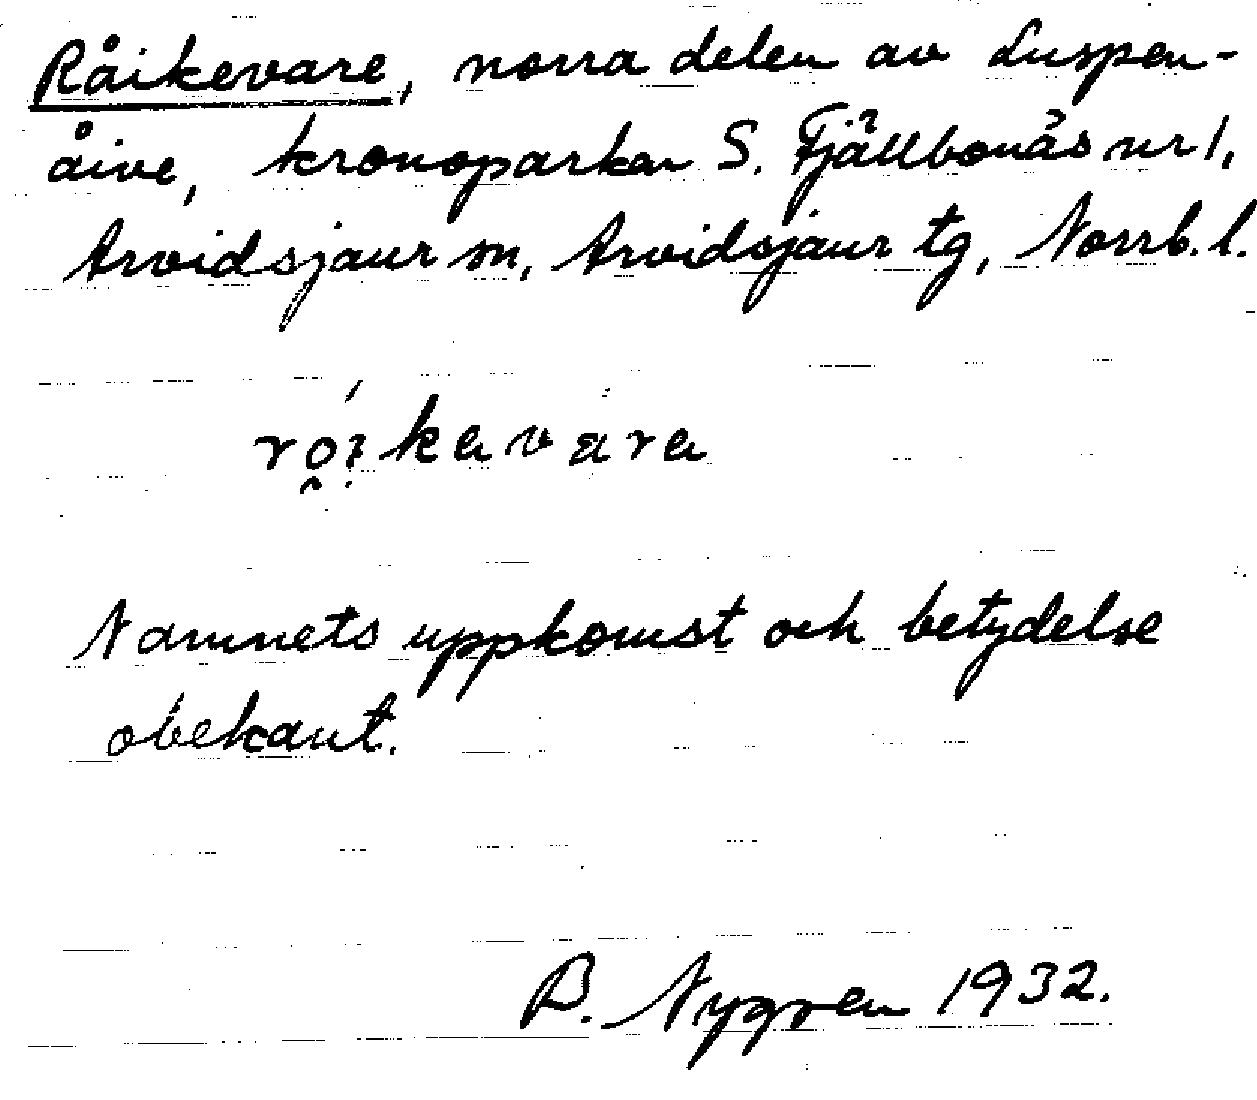 Råikevare, norra delen av Luspen-
åive, kronoparken S. Fjällbonäs nr 1,
Arvidsjaur sn, Arvidsjaur tg, Norrb. l.
Namnets uppkomst och betydelse
obekant.
B. Nygren 1932.